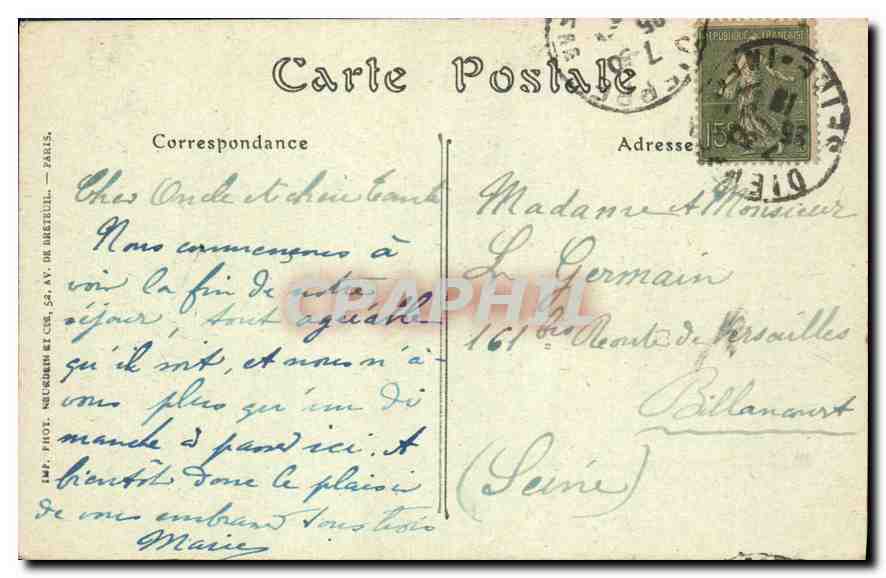 Carte Postale
Correspondance
Adresse
Cher Oncle et chère Tante
Nous commençons à
voir la fin de notre
séjour, tout agréable
qu'il soit, et nous n'a-
vons plus qu'un di
manche à passer ici. A
bientôt donc le plaisir
de vous embrasser tous trois
Marie
Madame et Monsieur
L. Germain
161 bis Route de Versailles
Billancourt
(Seine)
IMP. PHOT. NEURDEIN ET CIE, 52, AV. DE BRETEUIL. — PARIS.
REPUBLIQUE FRANÇAISE
15
CPAPHIL